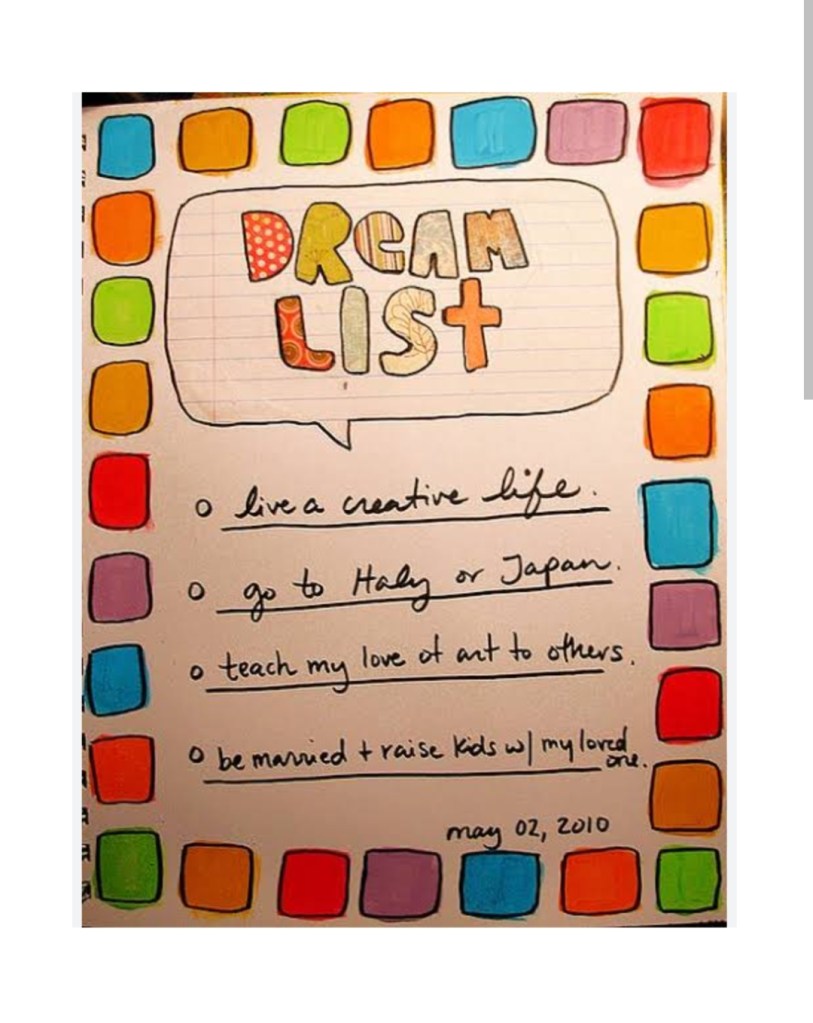 DREAM
LIST
live a creative life.
go to Italy or Japan.
teach my love of art to others.
be married + raise kids w/ my loved
one.
may 02, 2010